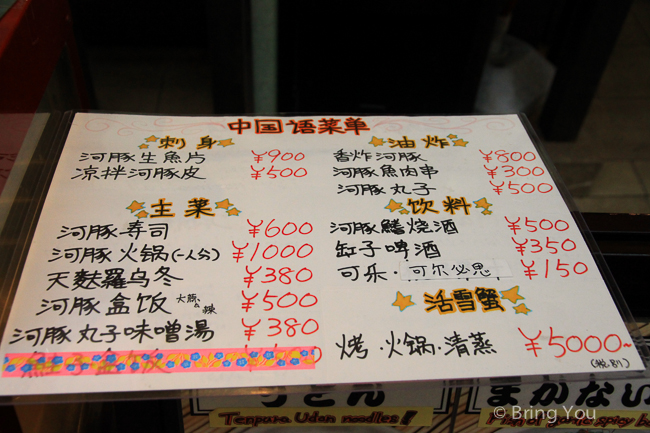 中国语菜单
刺身
河豚生魚片 ¥900
凉拌河豚皮 ¥500
主菜
河豚寿司 ¥600
河豚火锅(一人分) ¥1000
天麩羅乌冬 ¥380
河豚盒饭 ¥500
河豚丸子味噌湯 ¥380
油炸
香炸河豚 ¥800
河豚魚肉串 ¥300
河豚丸子 ¥500
饮料
河豚鰭烧酒 ¥500
缸子啤酒 ¥350
可乐·可尔必思 ¥150
活雪蟹
烤·火锅·清蒸 ¥5000~
(税別)
うどん
Tenpura Udon noodles!
まかない
© Bring You